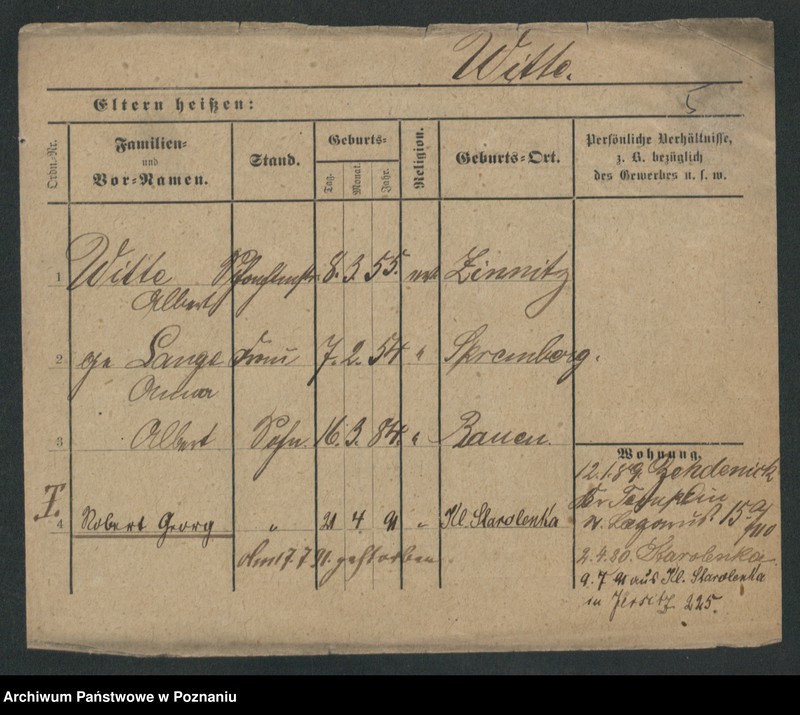 Witte.
5
Eltern heißen:
Ordn.-Nr.
Familien-
und
Vor-Namen.
Stand.
Geburts-
Tag.
Monat.
Jahr.
Religion.
Geburts-Ort.
Persönliche Verhältnisse,
z. B. bezüglich
des Gewerbes u. s. w.
1 Witte 8. 3. 55. Zinnitz
Albert
2 Lange Frau 7. 2. 54 " Spremberg.
Anna
3 Albert Sohn. 16. 3. 84. "
T.
4 Robert Georg " 21 4 91 " Kl. Starolenka
Am 17. 7 91. gestorben
Wohnung.
12. 1. 89. Zehdenick
Kr Templin
2. 4. 90. Starolenka
9. 7 91 aus Kl. Starolenka
in Jersitz 225.
Archiwum Państwowe w Poznaniu